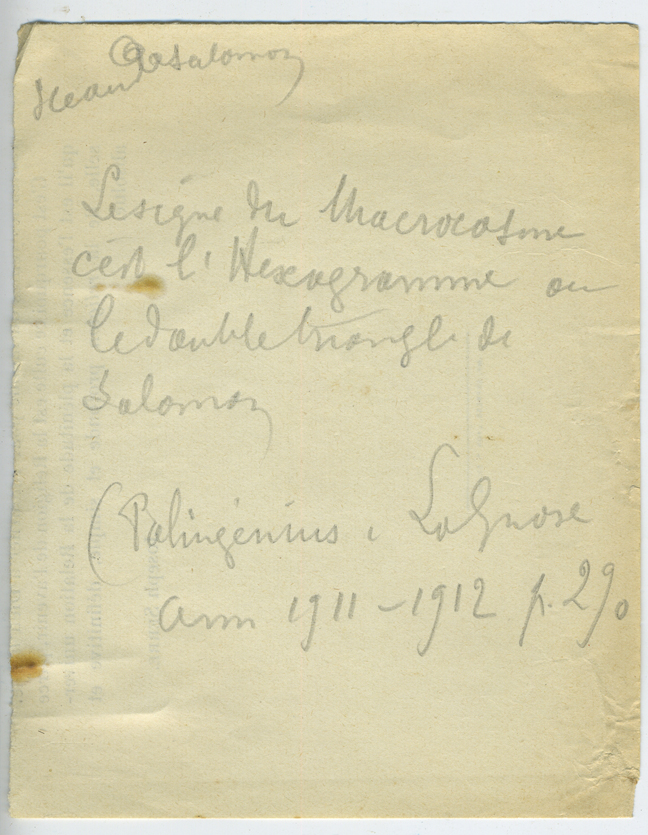 Sceau de Salomon
Le signe du Macrocosme
c'est l'Hexagramme ou
le double triangle de
Salomon
(Palingénius, La Gnose
ann 1911-1912 p. 290